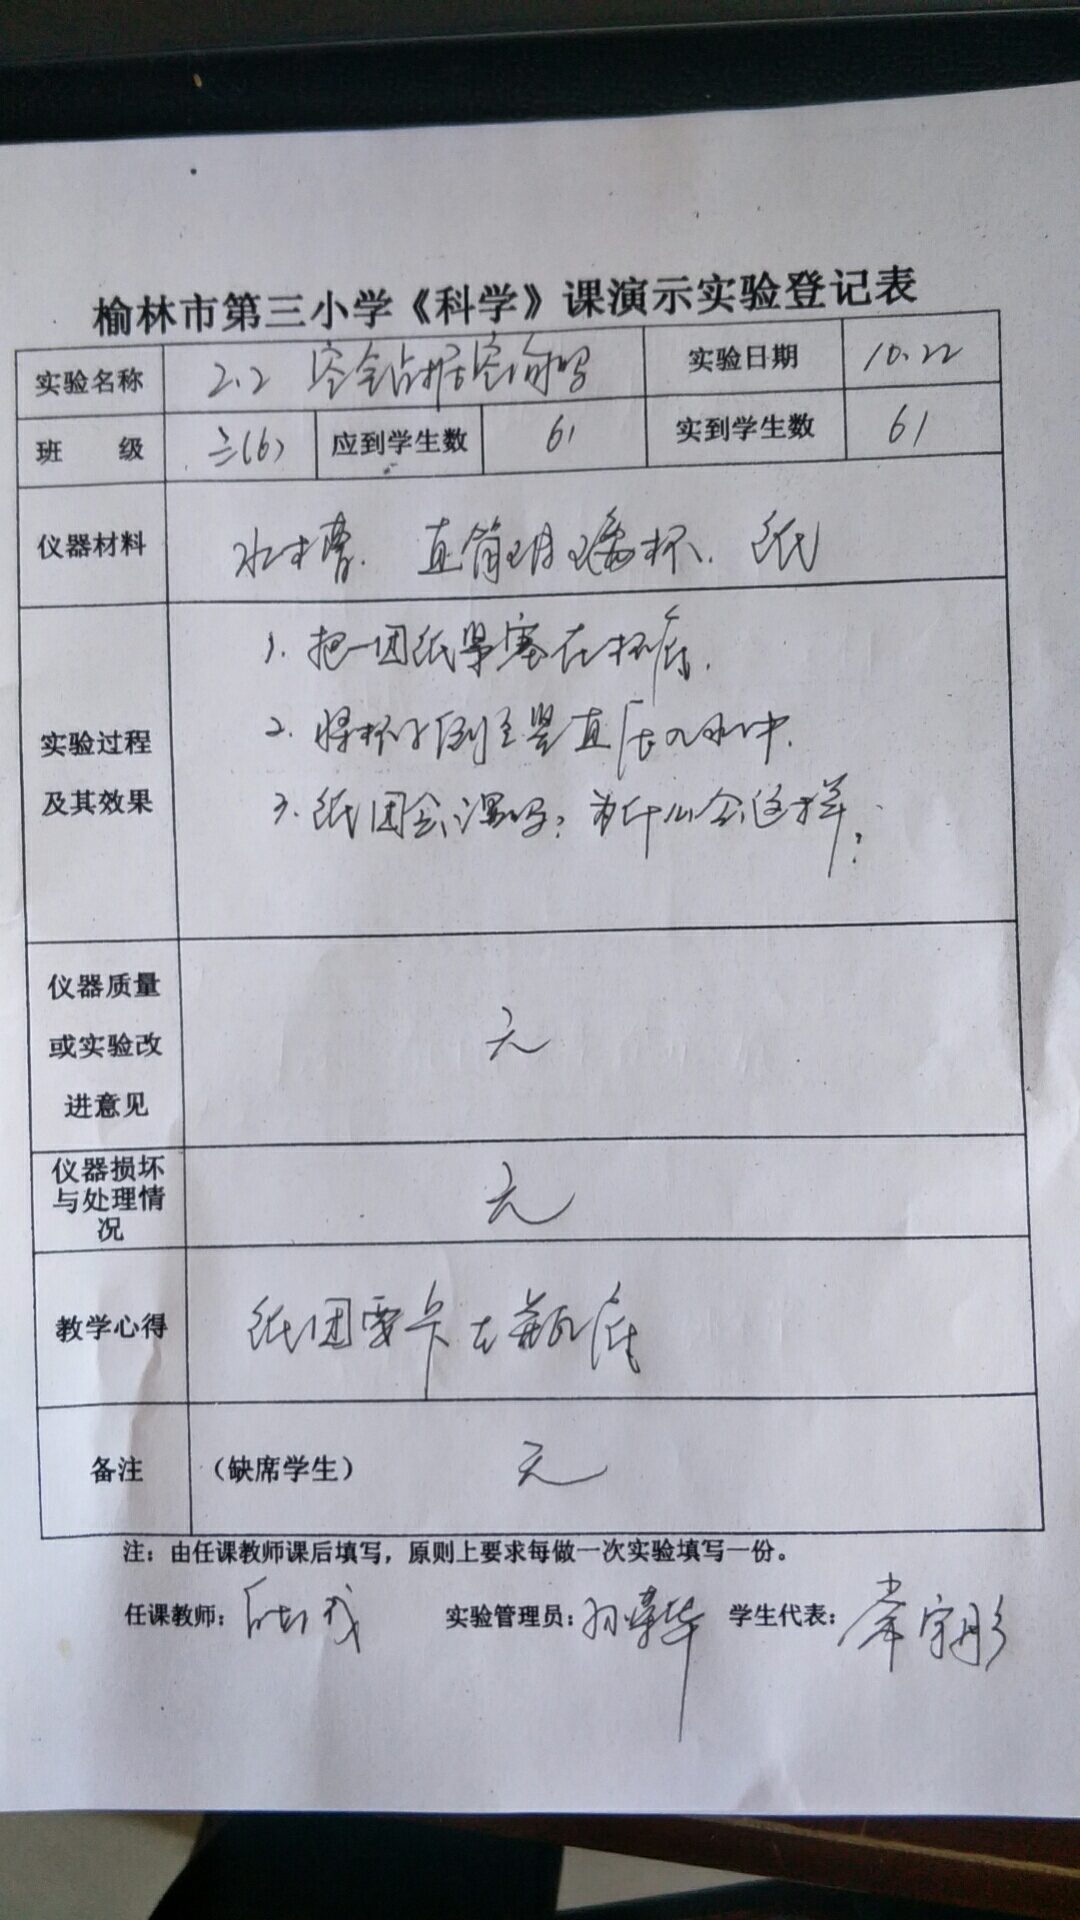 榆林市第三小学《科学》课演示实验登记表
实验名称 2.2 空会占据空间吗 实验日期 10.22
班 级 三(6) 应到学生数 61 实到学生数 61
仪器材料 水槽. 直筒玻璃杯. 纸
实验过程
及其效果
1. 把一团纸紧塞在杯底.
2. 将杯子倒立竖直压入水中.
3. 纸团会湿吗? 为什么会这样?
仪器质量
或实验改
进意见
无
仪器损坏
与处理情
况
无
教学心得 纸团要卡在瓶底
备注 （缺席学生） 无
注：由任课教师课后填写，原则上要求每做一次实验填写一份。
任课教师： 实验管理员： 学生代表：